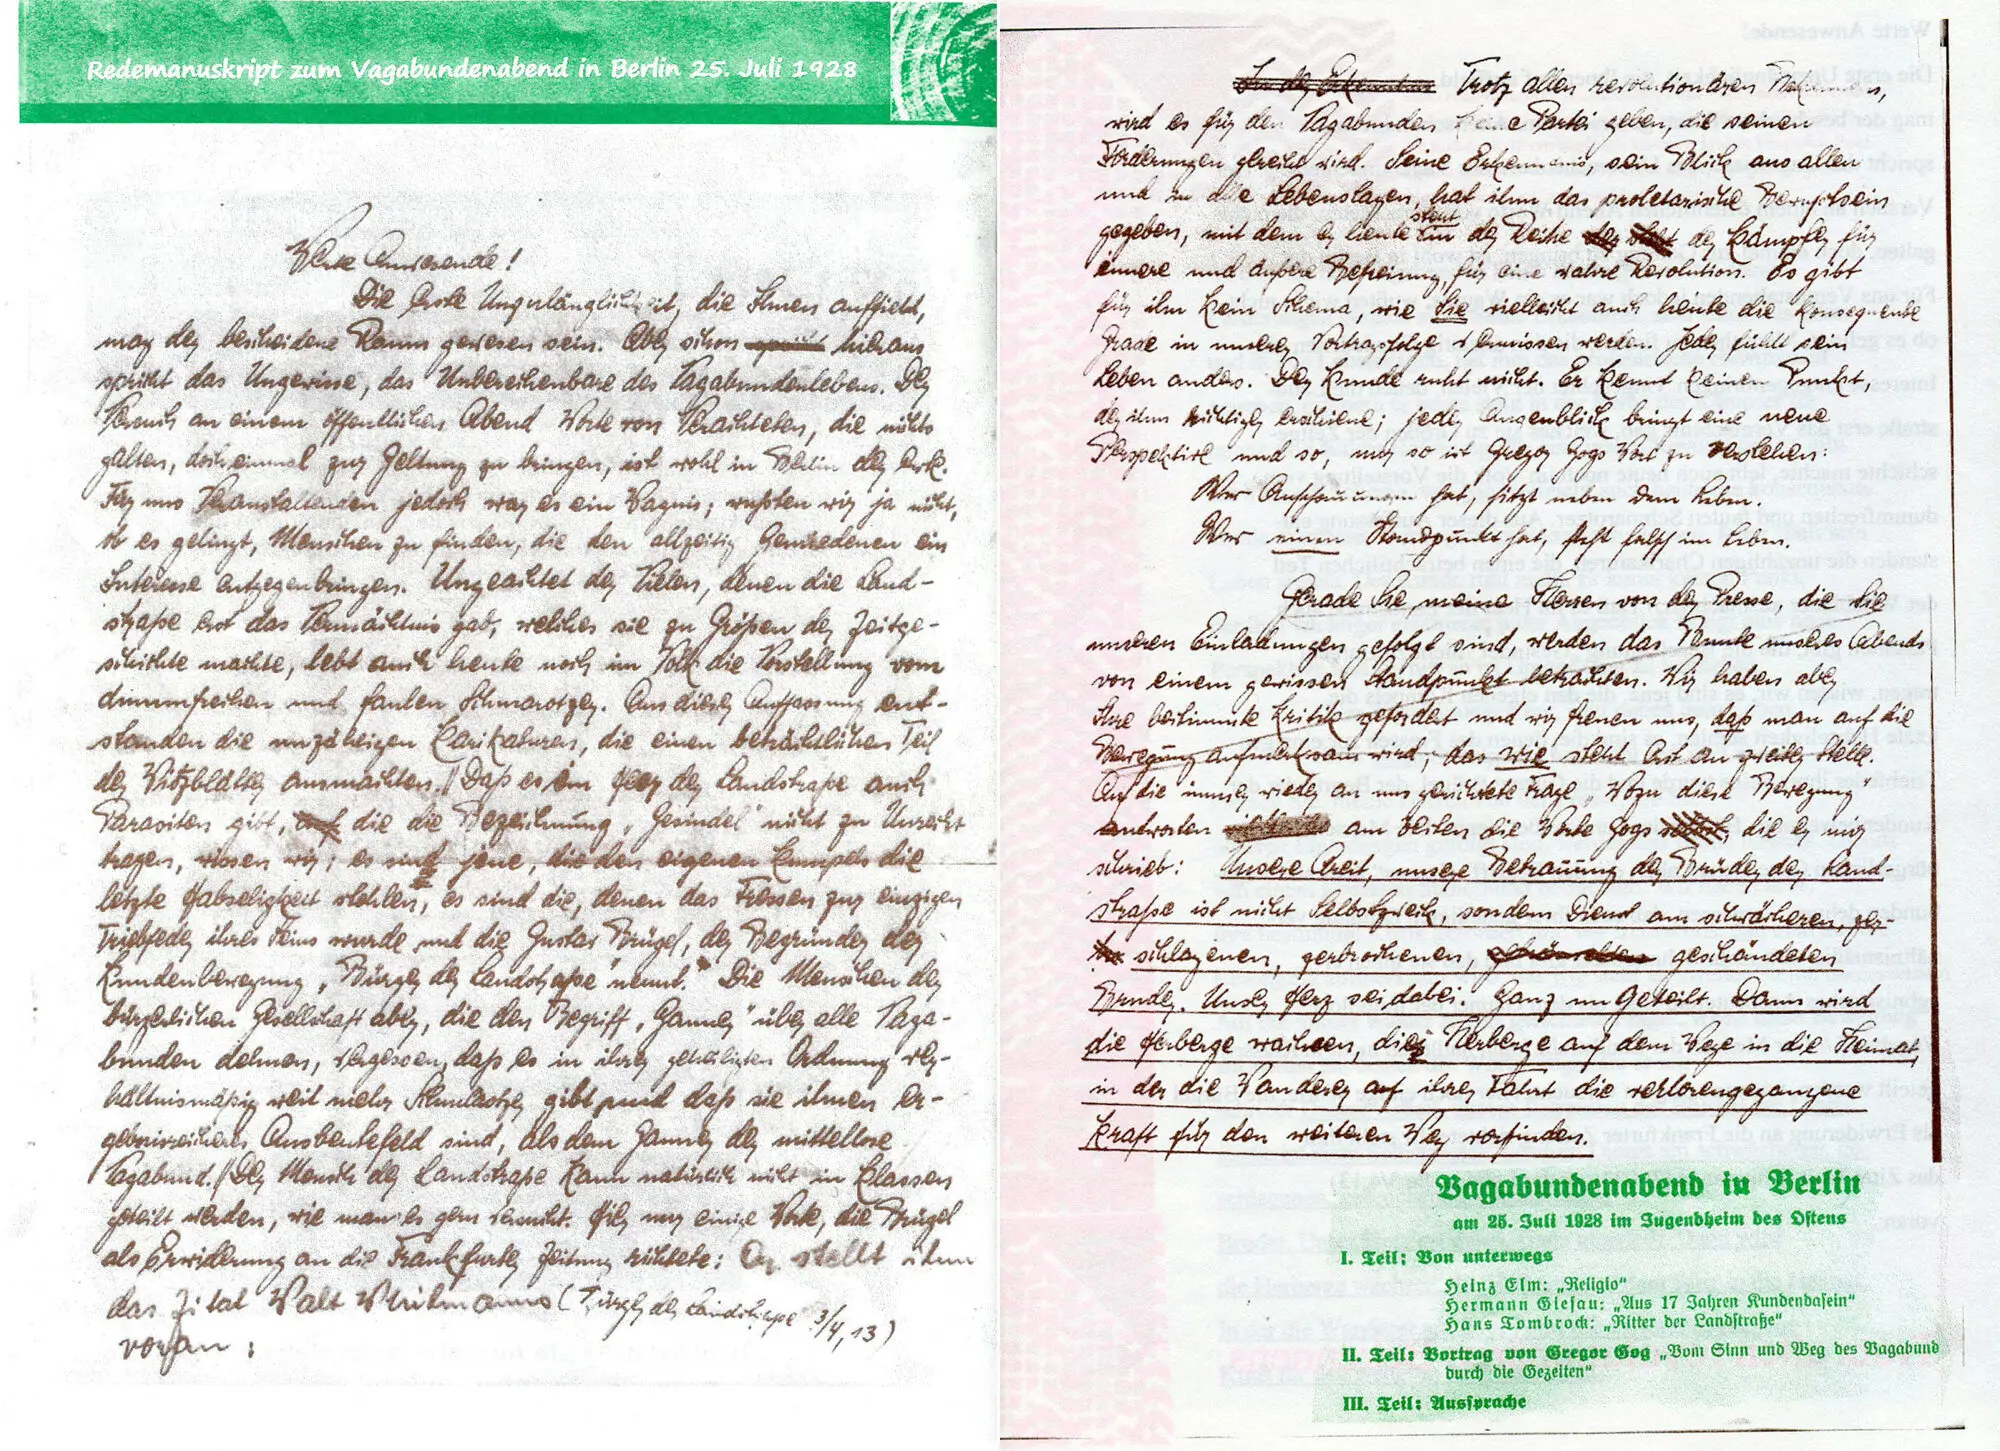 Redemanuskript zum Vagabundenabend in Berlin 25. Juli 1928
Werte Anwesende!
Die erste Unzulänglichkeit, die Ihnen auffield,
mag der bescheidene Raum gewesen sein. Aber schon hieraus
spricht das Ungewisse, das Unberechenbare des Vagabundenlebens. Der
Versuch an einem öffentlichen Abend Worte von Verachteten, die nichts
galten, doch einmal zur Geltung zu bringen, ist wohl in Berlin der erste.
Für uns Veranstaltenden jedoch war es ein Wagnis; wußten wir ja nicht,
ob es gelingt, Menschen zu finden, die den allzeitig Gemiedenen ein
Interesse entgegenbringen. Ungeachtet der Vielen, denen die Land-
straße erst das Vermächtnis gab, welches sie zu Größen der Zeitge-
schichte machte, lebt auch heute noch im Volk die Vorstellung vom
dummfrechen und faulen Schmarotzer. Aus dieser Auffassung ent-
standen die unzähligen Karikaturen, die einen beträchtlichen Teil
der Witzblätter ausmachten. // Daß es im Heer der Landstraße auch
Parasiten gibt, die die Bezeichnung „Gesindel" nicht zu Unrecht
tragen, wissen wir; es sind jene, die den eigenen Kumpels die
letzte Habseligkeit stehlen, es sind die, denen das Fressen zur einzigen
Triebfeder ihres Seins wurde und die Gustav Brügel, der Begründer der
Kundenbewegung „Bürger der Landstraße" nennt. Die Menschen der
bürgerlichen Gesellschaft aber, die den Begriff „Ganner" über alle Vaga-
bunden dehnen, vergessen, daß es in ihrer geheiligten Ordnung ver-
hältnismäßig weit mehr Schmarotzer gibt und daß sie ihnen er-
gebnisreicheres Ausbeutefeld sind, als dem Ganner der mittellose
Vagabund. // Der Mensch der Landstraße kann natürlich nicht in Klassen
geteilt werden, wie man es gern versucht. Hier nur einige Worte, die Brügel
als Erwiderung an die Frankfurter Zeitung richtete: Er stellt ihm
das Zitat Walt Whitmanns (Bürger der Landstrasse 3/4, 13)
voran:
Trotz allen revolutionären
wird es für den Vagabunden keine Partei geben, die seinen
Forderungen gerecht wird. Seine Erkenntnis, sein Blick aus allen
und in alle Lebenslagen, hat ihm das proletarische Bewußtsein
gegeben, mit dem er heute steht in der Reihe der Kämpfer für
innere und äußere Befreiung, für eine wahre Revolution. Es gibt
für ihn kein Schema, wie Sie vielleicht auch heute die konsequente
Grade in unserer Vortragsfolge vermissen werden. Jeder fühlt sein
Leben anders. Der Kunde ruht nicht. Er kennt keinen Punkt,
der ihm wichtiger erschiene; jeder Augenblick bringt eine neue
Perspektive und so, nur so ist Gregor Gogs Wort zu verstehen:
Wer Anschauungen hat, sitzt neben dem Leben.
Wer einen Standpunkt hat, steht falsch im Leben.
Gerade Sie, meine Herren von der Presse, die die
unseren Einladungen gefolgt sind, werden das Bunte unseres Abends
von einem gewissen Standpunkt betrachten. Wir haben aber
Ihre bestimmte Kritik gefordert und wir freuen uns, daß man auf die
Bewegung aufmerksam wird; das wie steht erst an zweiter Stelle.
Auf die immer wieder an uns gerichtete Frage „Wozu diese Bewegung"
antworten am besten die Worte Gogs, die er mir
schrieb: Unsere Arbeit, unsere Betrauung der Brüder der Land-
straße ist nicht Selbstzweck, sondern Dienst am schwächeren, zer-
schlagenen, gebrochenen, geschändeten
Bruder. Unser Herz sei dabei. Ganz un Geteilt. Dann wird
die Herberge wachsen, die Herberge auf dem Wege in die Heimat,
in der die Wanderer auf ihrer Fahrt die verlorengegangene
Kraft für den weiteren Weg vorfinden.
Vagabundenabend in Berlin
am 25. Juli 1928 im Jugendheim des Ostens
I. Teil: Von unterwegs
Heinz Elm: „Religio"
Hermann Giesau: „Aus 17 Jahren Kundendasein"
Hans Tombrock: „Ritter der Landstraße"
II. Teil: Vortrag von Gregor Gog „Vom Sinn und Weg des Vagabund
durch die Gezeiten"
III. Teil: Aussprache